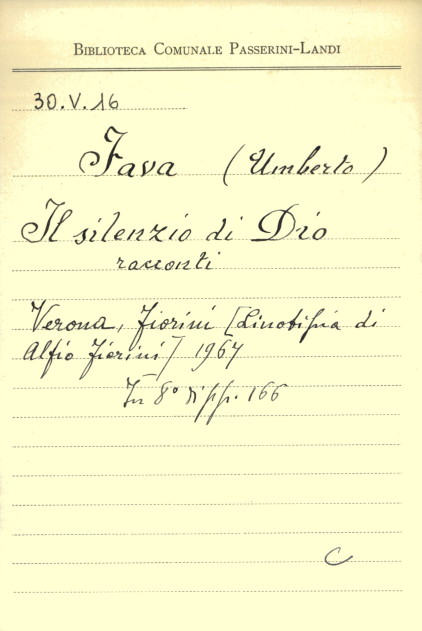 BIBLIOTECA COMUNALE PASSERINI-LANDI
30.V.16
Fava (Umberto)
Il silenzio di Dio
racconti
Verona, Fiorini [Linotipia di
Alfio Fiorini] 1967
In 8° di pp. 166
C